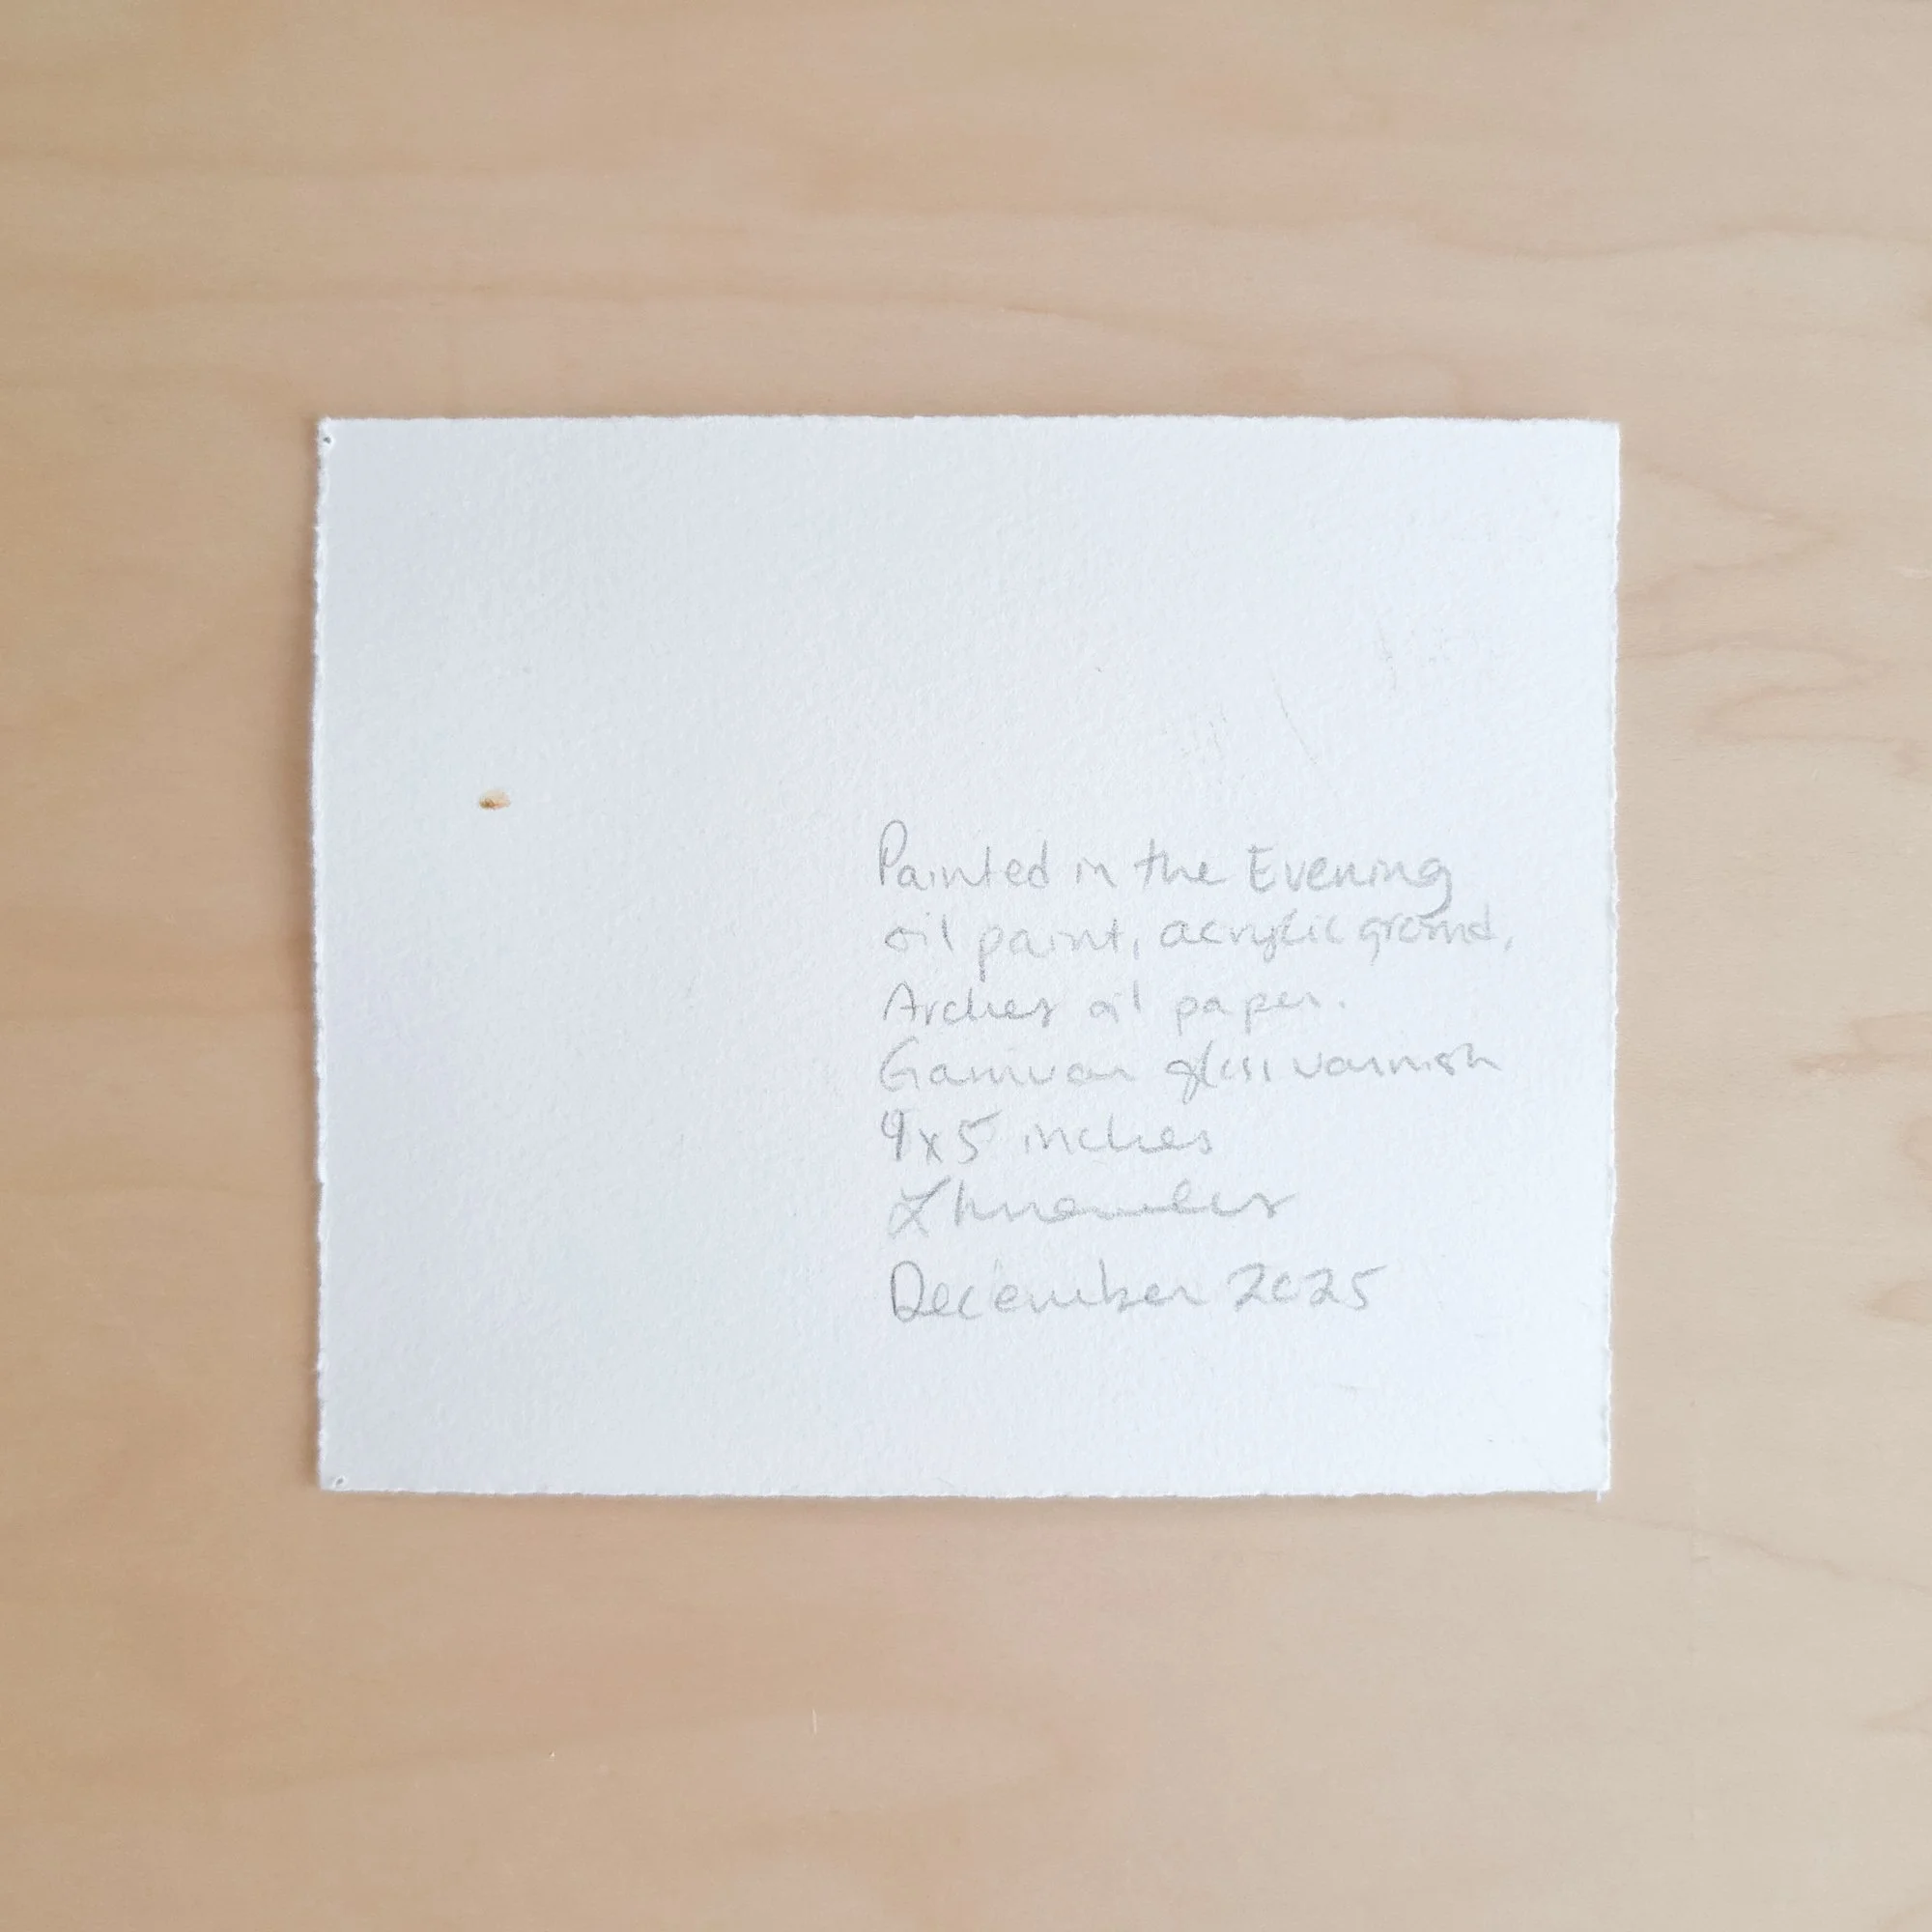 Painted in the Evening
oil paint, acrylic ground,
Arches oil paper.
Gamvar gloss varnish
4x5 inches
December 2025